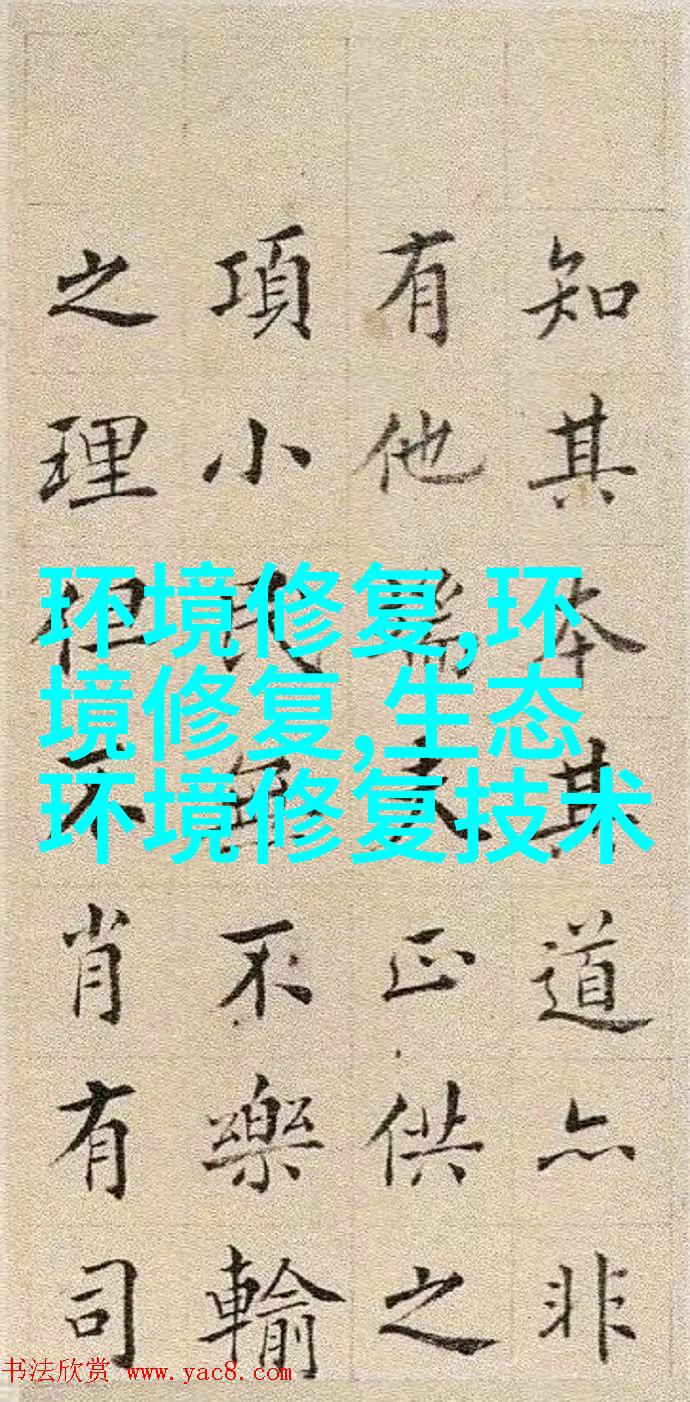 知其本其道亦非
有他端夫正供之
項小民無不樂輸
之理但不肖有司
环境修复,环
境修复,生态
环境修复技术
书法欣赏 www.yac8.com